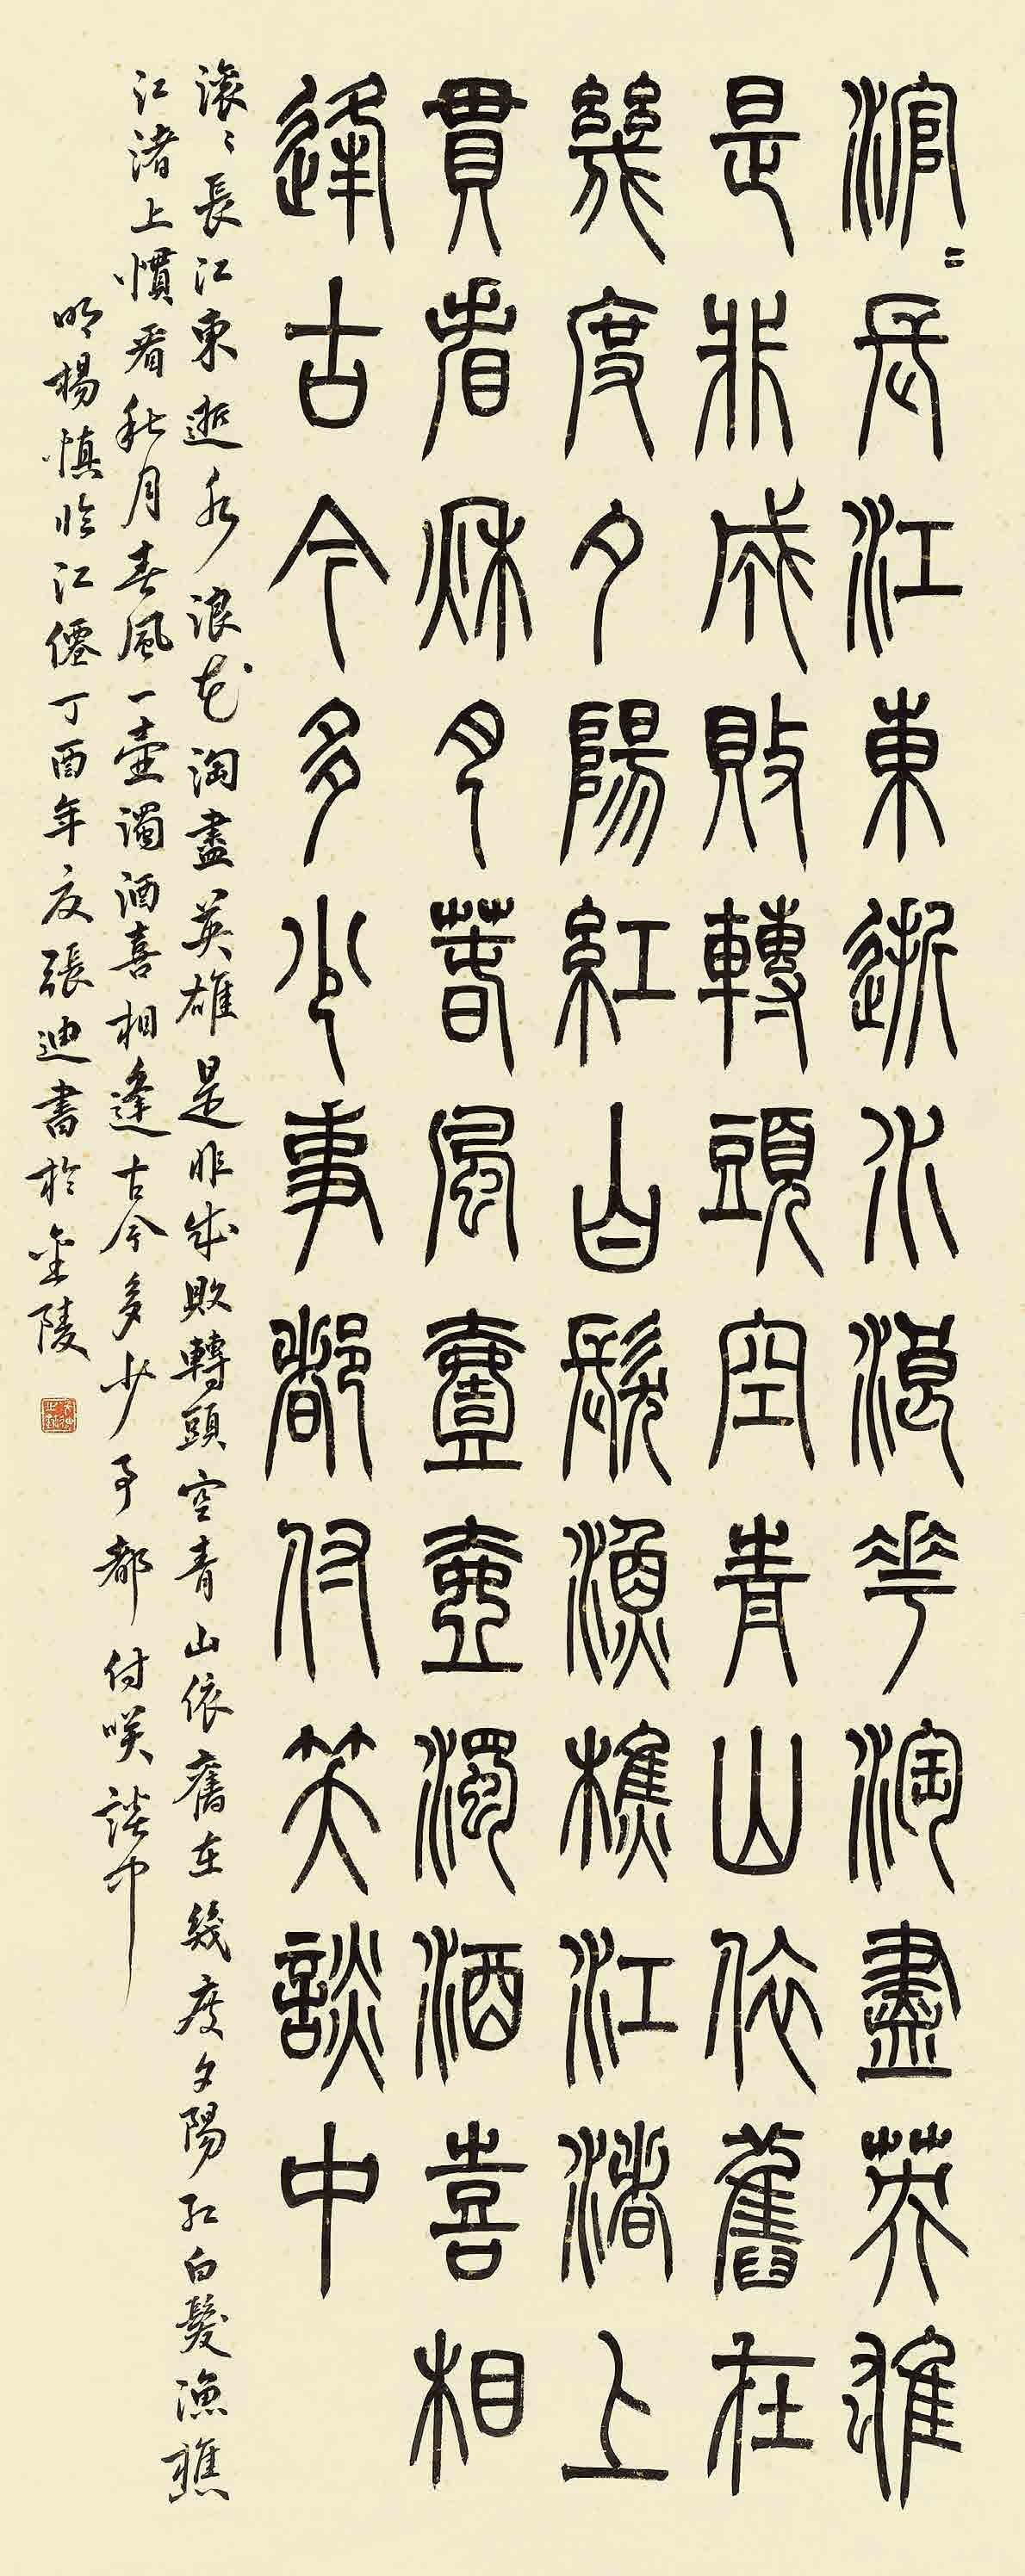 滾〻長江東逝水浪花淘盡英雄
是非成敗轉頭空青山依舊在
幾度夕陽紅白髮漁樵江渚上
貫看秋月春風壹壺濁酒喜相
逢古今多少事都付笑談中
滚〻長江東逝水浪花淘盡英雄是非成敗轉頭空青山依舊在幾度夕陽紅白髮漁樵
江渚上慣看秋月春風一壺濁酒喜相逢古今多少事都付咲談中
明楊慎臨江僊丁酉年夜張迪書於金陵